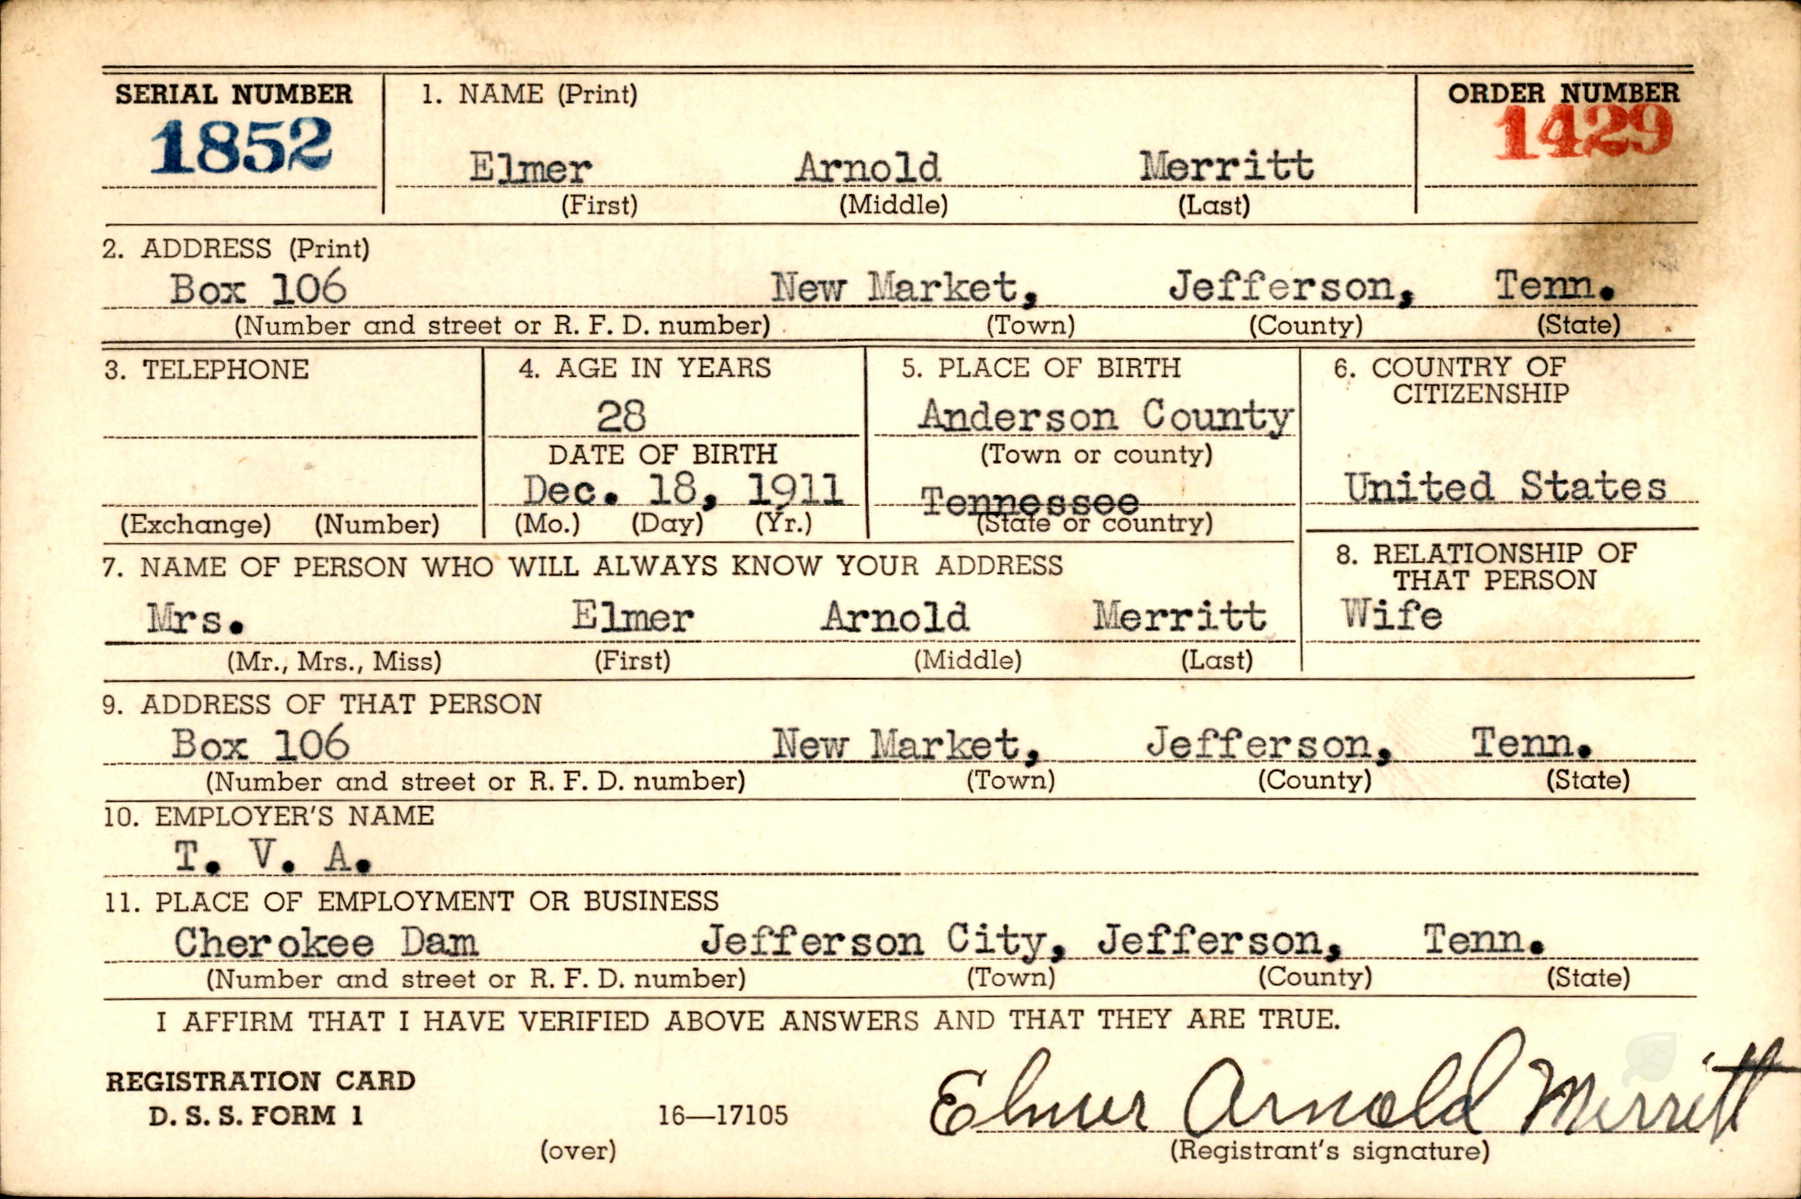 SERIAL NUMBER 1. NAME (Print) ORDER NUMBER
1852 1429
Elmer Arnold Merritt
(First) (Middle) (Last)
2. ADDRESS (Print)
Box 106 New Market, Jefferson, Tenn.
(Number and street or R. F. D. number) (Town) (County) (State)
3. TELEPHONE 4. AGE IN YEARS 5. PLACE OF BIRTH 6. COUNTRY OF
CITIZENSHIP
28 Anderson County
DATE OF BIRTH (Town or county)
Dec. 18, 1911 Tennessee United States
(Exchange) (Number) (Mo.) (Day) (Yr.) (State or country)
7. NAME OF PERSON WHO WILL ALWAYS KNOW YOUR ADDRESS 8. RELATIONSHIP OF
THAT PERSON
Mrs. Elmer Arnold Merritt Wife
(Mr., Mrs., Miss) (First) (Middle) (Last)
9. ADDRESS OF THAT PERSON
Box 106 New Market, Jefferson, Tenn.
(Number and street or R. F. D. number) (Town) (County) (State)
10. EMPLOYER'S NAME
T. V. A.
11. PLACE OF EMPLOYMENT OR BUSINESS
Cherokee Dam Jefferson City, Jefferson, Tenn.
(Number and street or R. F. D. number) (Town) (County) (State)
I AFFIRM THAT I HAVE VERIFIED ABOVE ANSWERS AND THAT THEY ARE TRUE.
REGISTRATION CARD
D. S. S. FORM 1 16—17105 Elmer Arnold Merritt
(over) (Registrant's signature)